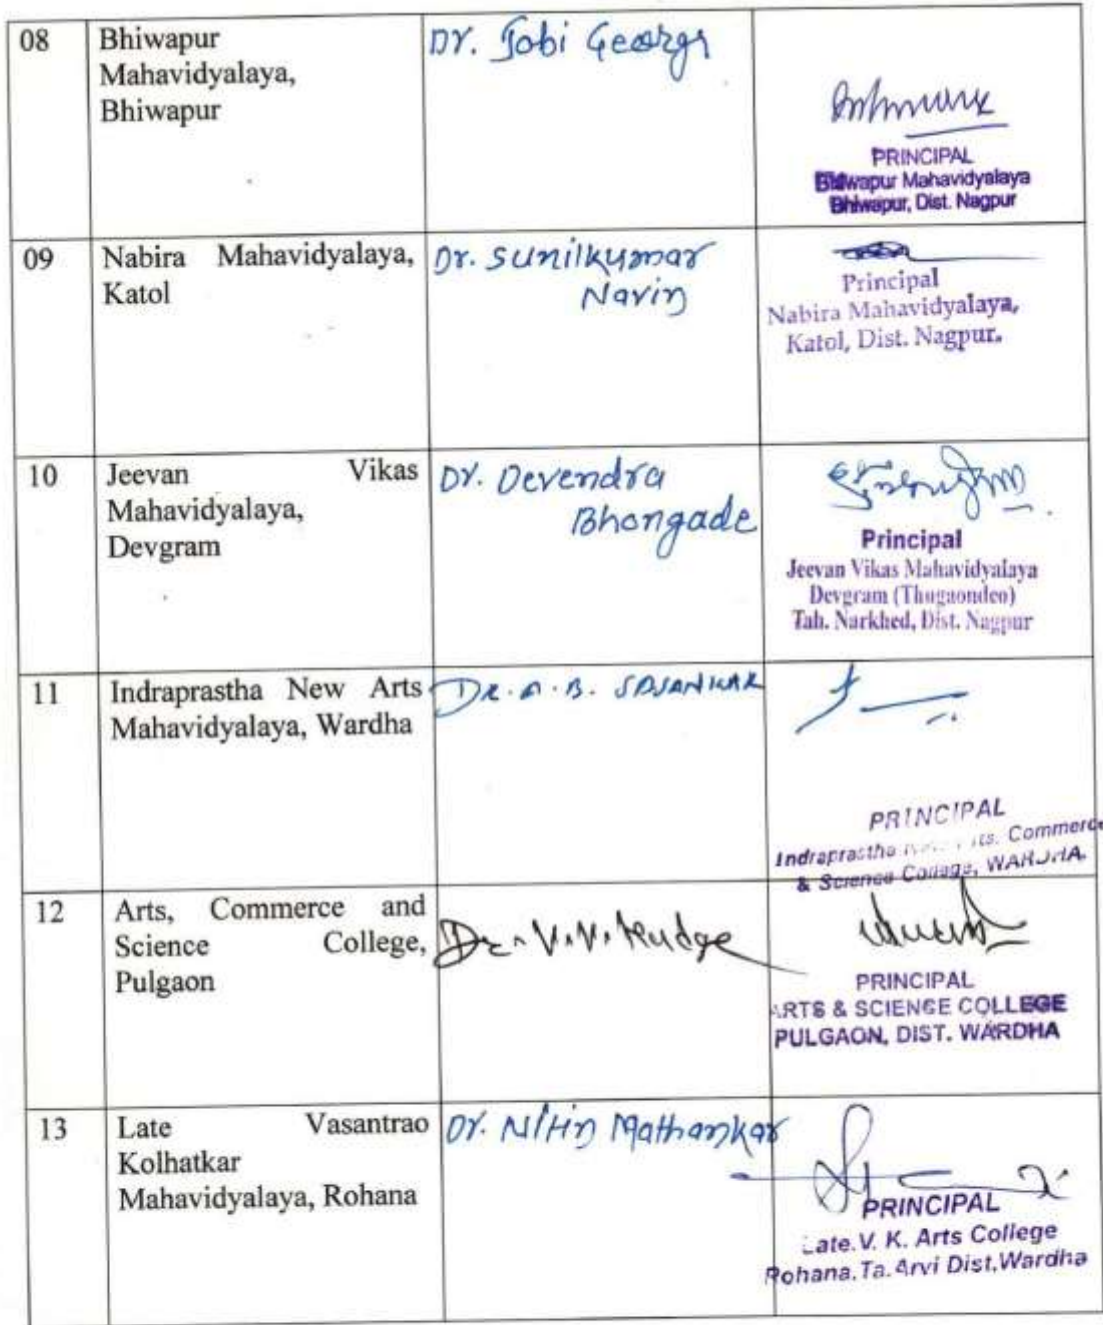 08
Bhiwapur
Mahavidyalaya,
Bhiwapur
Dr. Jobi George
PRINCIPAL
Bhiwapur Mahavidyalaya
Bhiwapur, Dist. Nagpur
09
Nabira Mahavidyalaya,
Katol
Dr. Sunilkumar
Navin
Principal
Nabira Mahavidyalaya,
Katol, Dist. Nagpur.
10
Jeevan Vikas
Mahavidyalaya,
Devgram
Dr. Devendra
Bhongade
Principal
Jeevan Vikas Mahavidyalaya
Devgram (Thugaondeo)
Tah. Narkhed, Dist. Nagpur
11
Indraprastha New Arts
Mahavidyalaya, Wardha
DR. A. B. SASANKAR
PRINCIPAL
Indraprastha Commerce
& Science College, WARDHA.
12
Arts, Commerce and
Science College,
Pulgaon
Dr. V.V. Kudge
PRINCIPAL
ARTS & SCIENCE COLLEGE
PULGAON, DIST. WARDHA
13
Late Vasantrao
Kolhatkar
Mahavidyalaya, Rohana
Dr. Nitin Mathankar
PRINCIPAL
Late. V. K. Arts College
Rohana, Ta. Arvi Dist, Wardha